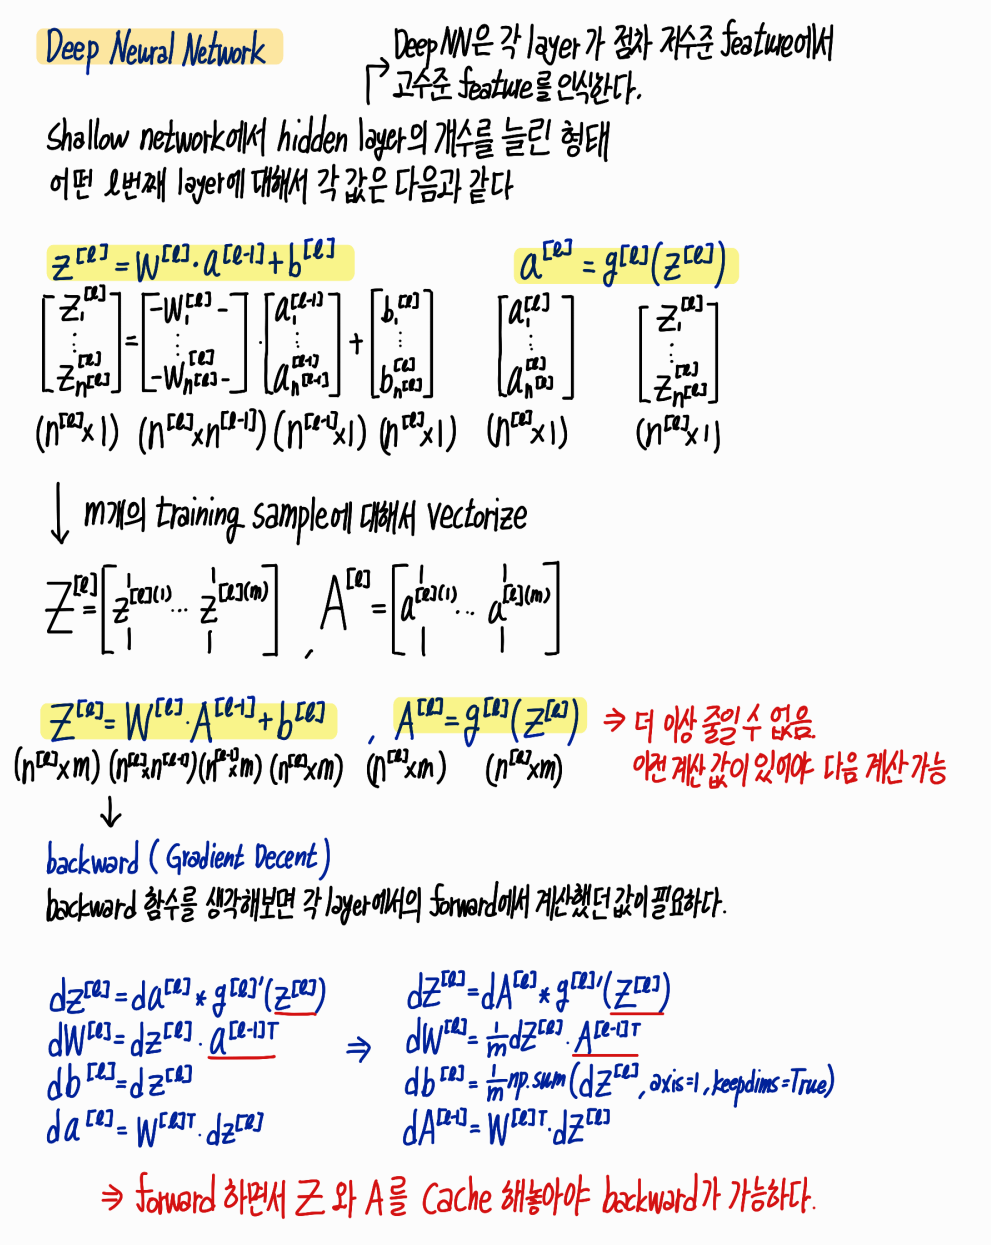 Deep Neural Network
Deep NN은 각 layer가 점차 저수준 feature에서
고수준 feature를 인식한다.
Shallow network에서 hidden layer의 개수를 늘린 형태
어떤 l번째 layer에 대해서 각 값은 다음과 같다
z^[l] = W^[l]·a^[l-1] + b^[l]    a^[l] = g^[l](z^[l])
[z₁^[l] ⋮ z_n^[l]^[l]] = [-W₁^[l]- ⋮ -W_n^[l]^[l]-]·[a₁^[l-1] ⋮ a_n^[l-1]^[l-1]] + [b₁^[l] ⋮ b_n^[l]^[l]]    [a₁^[l] ⋮ a_n^[l]^[l]]    [z₁^[l] ⋮ z_n^[l]^[l]]
(n^[l]×1) (n^[l]×n^[l-1]) (n^[l-1]×1) (n^[l]×1) (n^[l]×1) (n^[l]×1)
↓ m개의 training sample에 대해서 vectorize
Z^[l] = [z^[l](1) ... z^[l](m)], A^[l] = [a^[l](1) ... a^[l](m)]
Z^[l] = W^[l]·A^[l-1] + b^[l], A^[l] = g^[l](Z^[l]) ⇒ 더 이상 줄일 수 없음.
(n^[l]×m) (n^[l]×n^[l-1]) (n^[l-1]×m) (n^[l]×m) (n^[l]×m) (n^[l]×m) 이전 계산 값이 있어야 다음 계산 가능
↓
backward (Gradient Decent)
backward 함수를 생각해보면 각 layer에서의 forward에서 계산했던 값이 필요하다.
dz^[l] = da^[l] * g^[l]'(z^[l])    dZ^[l] = dA^[l] * g^[l]'(Z^[l])
dW^[l] = dz^[l]·a^[l-1]T ⇒ dW^[l] = 1/m dZ^[l]·A^[l-1]T
db^[l] = dz^[l]    db^[l] = 1/m np.sum(dZ^[l], axis=1, keepdims=True)
da^[l] = W^[l]T·dz^[l]    dA^[l-1] = W^[l]T·dZ^[l]
⇒ forward 하면서 Z와 A를 Cache 해놓아야 backward가 가능하다.